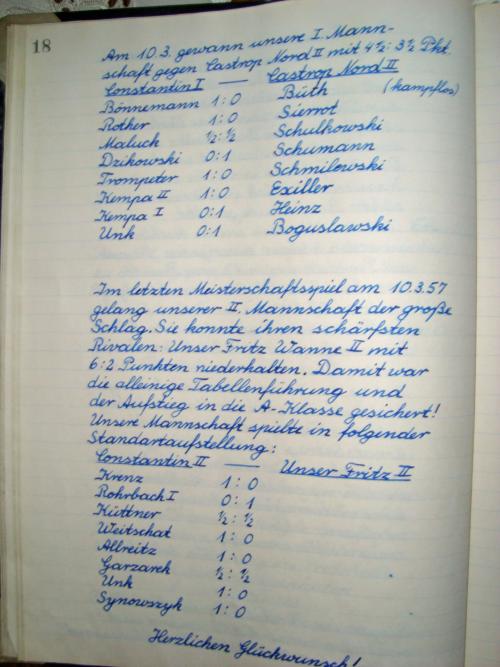 18
Am 10.3. gewann unsere I. Mann-
schaft gegen Castrop Nord II mit 4½ : 3½ Pkt.
Constantin I — Castrop Nord II
Bönnemann 1:0 Büth (kampflos)
Rother 1:0 Sierrot
Maluch ½:½ Schulkowski
Dzikowski 0:1 Schumann
Trompeter 1:0 Schmilewski
Kempa II 1:0 Exiller
Kempa I 0:1 Heinz
Unk 0:1 Boguslawski
Im letzten Meisterschaftsspiel am 10.3.57
gelang unserer II. Mannschaft der große
Schlag. Sie konnte ihren schärfsten
Rivalen: Unser Fritz Wanne II mit
6:2 Punkten niederhalten. Damit war
die alleinige Tabellenführung und
der Aufstieg in die A-Klasse gesichert!
Unsere Mannschaft spielte in folgender
Standartaufstellung:
Constantin II — Unser Fritz II
Krenz 1:0
Rohrbach I 0:1
Küttner ½:½
Weitschat 1:0
Allreitz 1:0
Garzarek ½:½
Unk 1:0
Synowszyk 1:0
Herzlichen Glückwunsch!